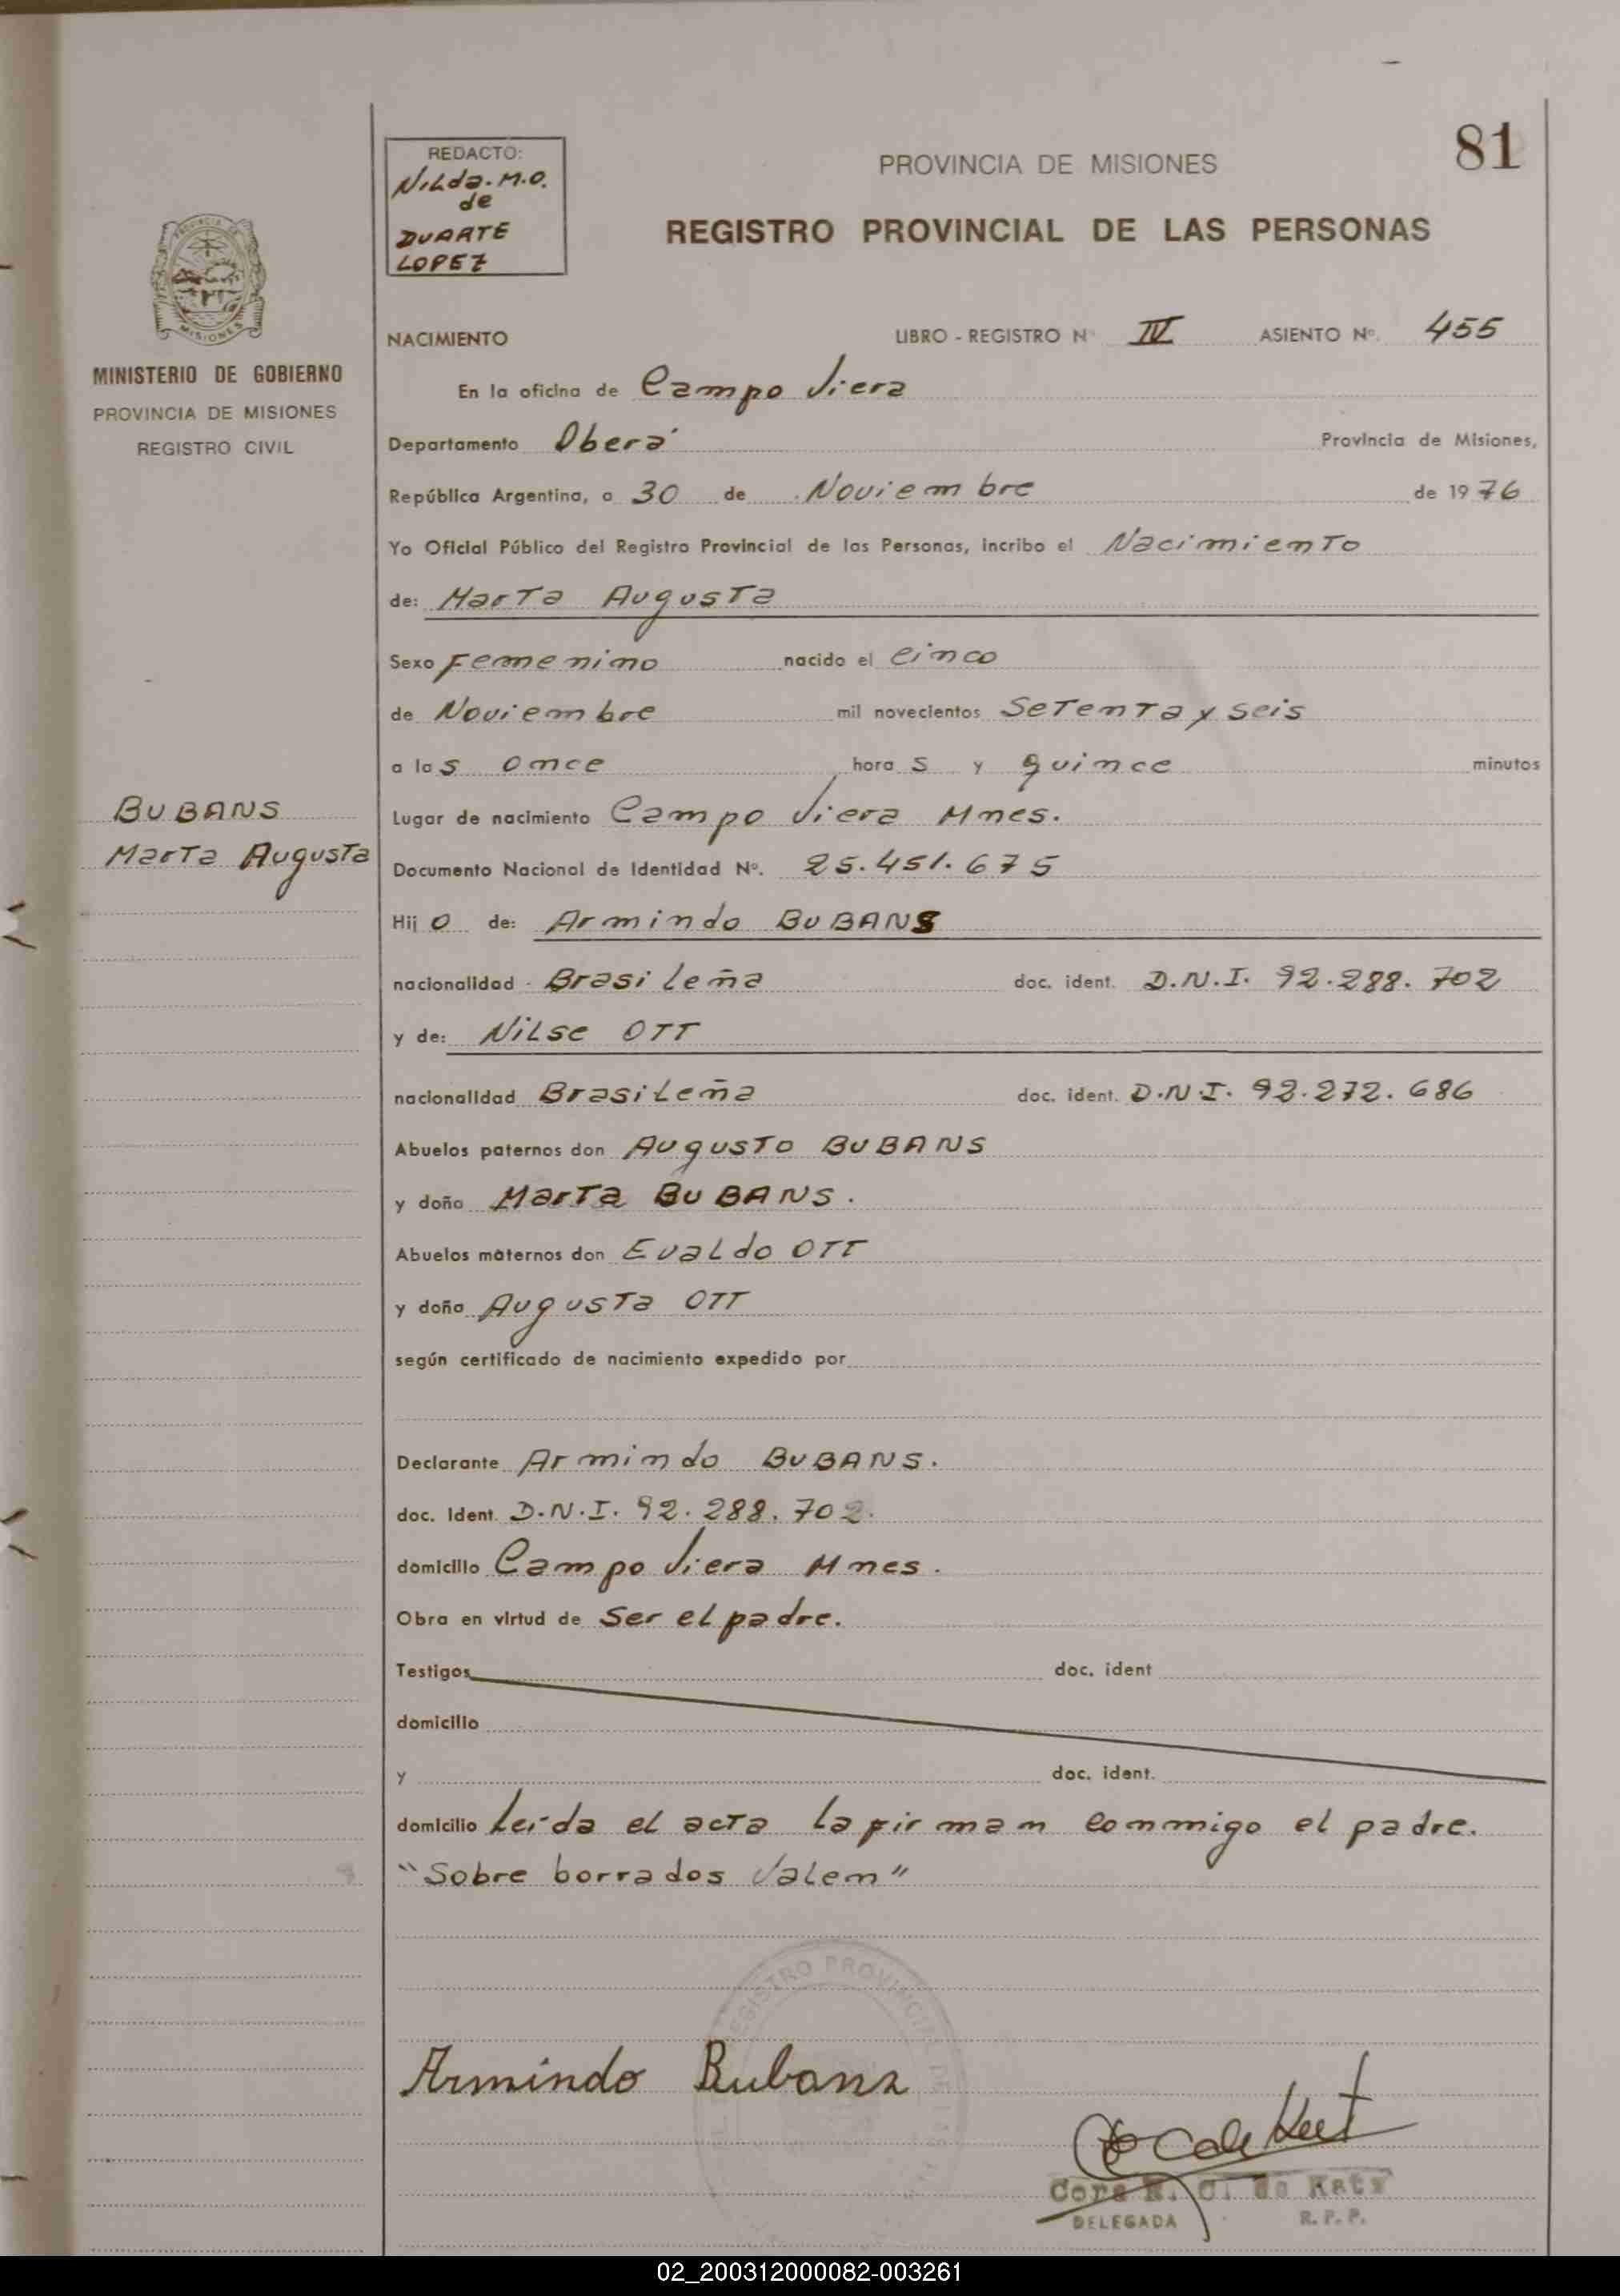 81
REDACTO:
Nilda. M.O.
de
DUARTE
LOPEZ
PROVINCIA DE MISIONES
REGISTRO PROVINCIAL DE LAS PERSONAS
MINISTERIO DE GOBIERNO
PROVINCIA DE MISIONES
REGISTRO CIVIL
NACIMIENTO LIBRO - REGISTRO Nº IV ASIENTO Nº. 455
En la oficina de Campo Viera
Departamento Oberá Provincia de Misiones,
República Argentina, a 30 de Noviembre de 1976
Yo Oficial Público del Registro Provincial de las Personas, incribo el Nacimiento
de: Marta Augusta
Sexo Femenino nacido el cinco
de Noviembre mil novecientos Setenta y seis
a las once horas y quince minutos
BUBANS
Marta Augusta
Lugar de nacimiento Campo Viera Mnes.
Documento Nacional de Identidad Nº. 25.451.675
Hijo de: Armindo BUBANS
nacionalidad Brasileña doc. ident. D.N.I. 92.288.702
y de: Nilse OTT
nacionalidad Brasileña doc. ident. D.N.I. 92.272.686
Abuelos paternos don Augusto BUBANS
y doña Marta BUBANS.
Abuelos maternos don Evaldo OTT
y doña Augusta OTT
según certificado de nacimiento expedido por
Declarante Armindo BUBANS.
doc. Ident. D.N.I. 92.288.702.
domicilio Campo Viera Mnes.
Obra en virtud de ser el padre.
Testigos doc. ident
domicilio
y doc. ident.
domicilio Leída el acta la firman conmigo el padre.
"Sobre borrados valen"
REGISTRO PROVINCIAL DE
Armindo Bubans
DELEGADA R. P. P.
02_200312000082-003261